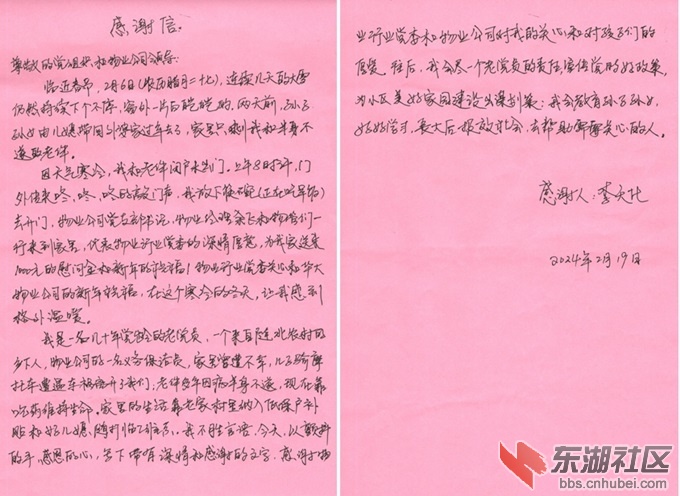 感谢信
尊敬的党组织和物业公司领导:
临近春节,2月6日(农历腊月二十七),连续几天的大雪
仍然持续下个不停,窗外一片白皑皑的,两天前,孙子
孙女由儿媳带回外婆家过年去了,家里只剩我和半身不
遂的老伴。
因天气寒冷,我和老伴闭户未出门。上午8时许,门
外传来咚、咚、咚的敲门声,我放下筷子(正在吃早饭)
去开门,物业公司党支部书记,物业经理和物管们一
行来到家里,代表物业行业党委的深情厚意,为我家送来
1000元的慰问金和新年的祝福!物业行业党委关心和华大
物业公司的新年祝福,在这个寒冷的冬天,让我感到
格外温暖。
我是一名几十年党龄的老党员,一个来自随北农村的
乡下人,物业公司的一名义务保洁员,家里遭遇不幸,儿子骑摩
托车遭遇车祸离开了我们,老伴多年因病半身不遂,现在靠
吃药维持生命。家里的生活靠老家村里纳入低保户补
贴和好儿媳的打临工维持。我不善言语,今天,以颤抖
的手,感恩的心,写下带有深情和感谢的文字,感谢物
业行业党委和物业公司对我的关心和对孩子们的
厚爱。往后,我会尽一个老党员的责任,宣传党的好政策,
为小区美好家园建设出谋划策;我会教育孙子孙女,
好好学习,长大后报效社会,去帮助需要关心的人。
感谢人:李天化
2024年2月19日
东湖社区
bbs.cnhubei.com